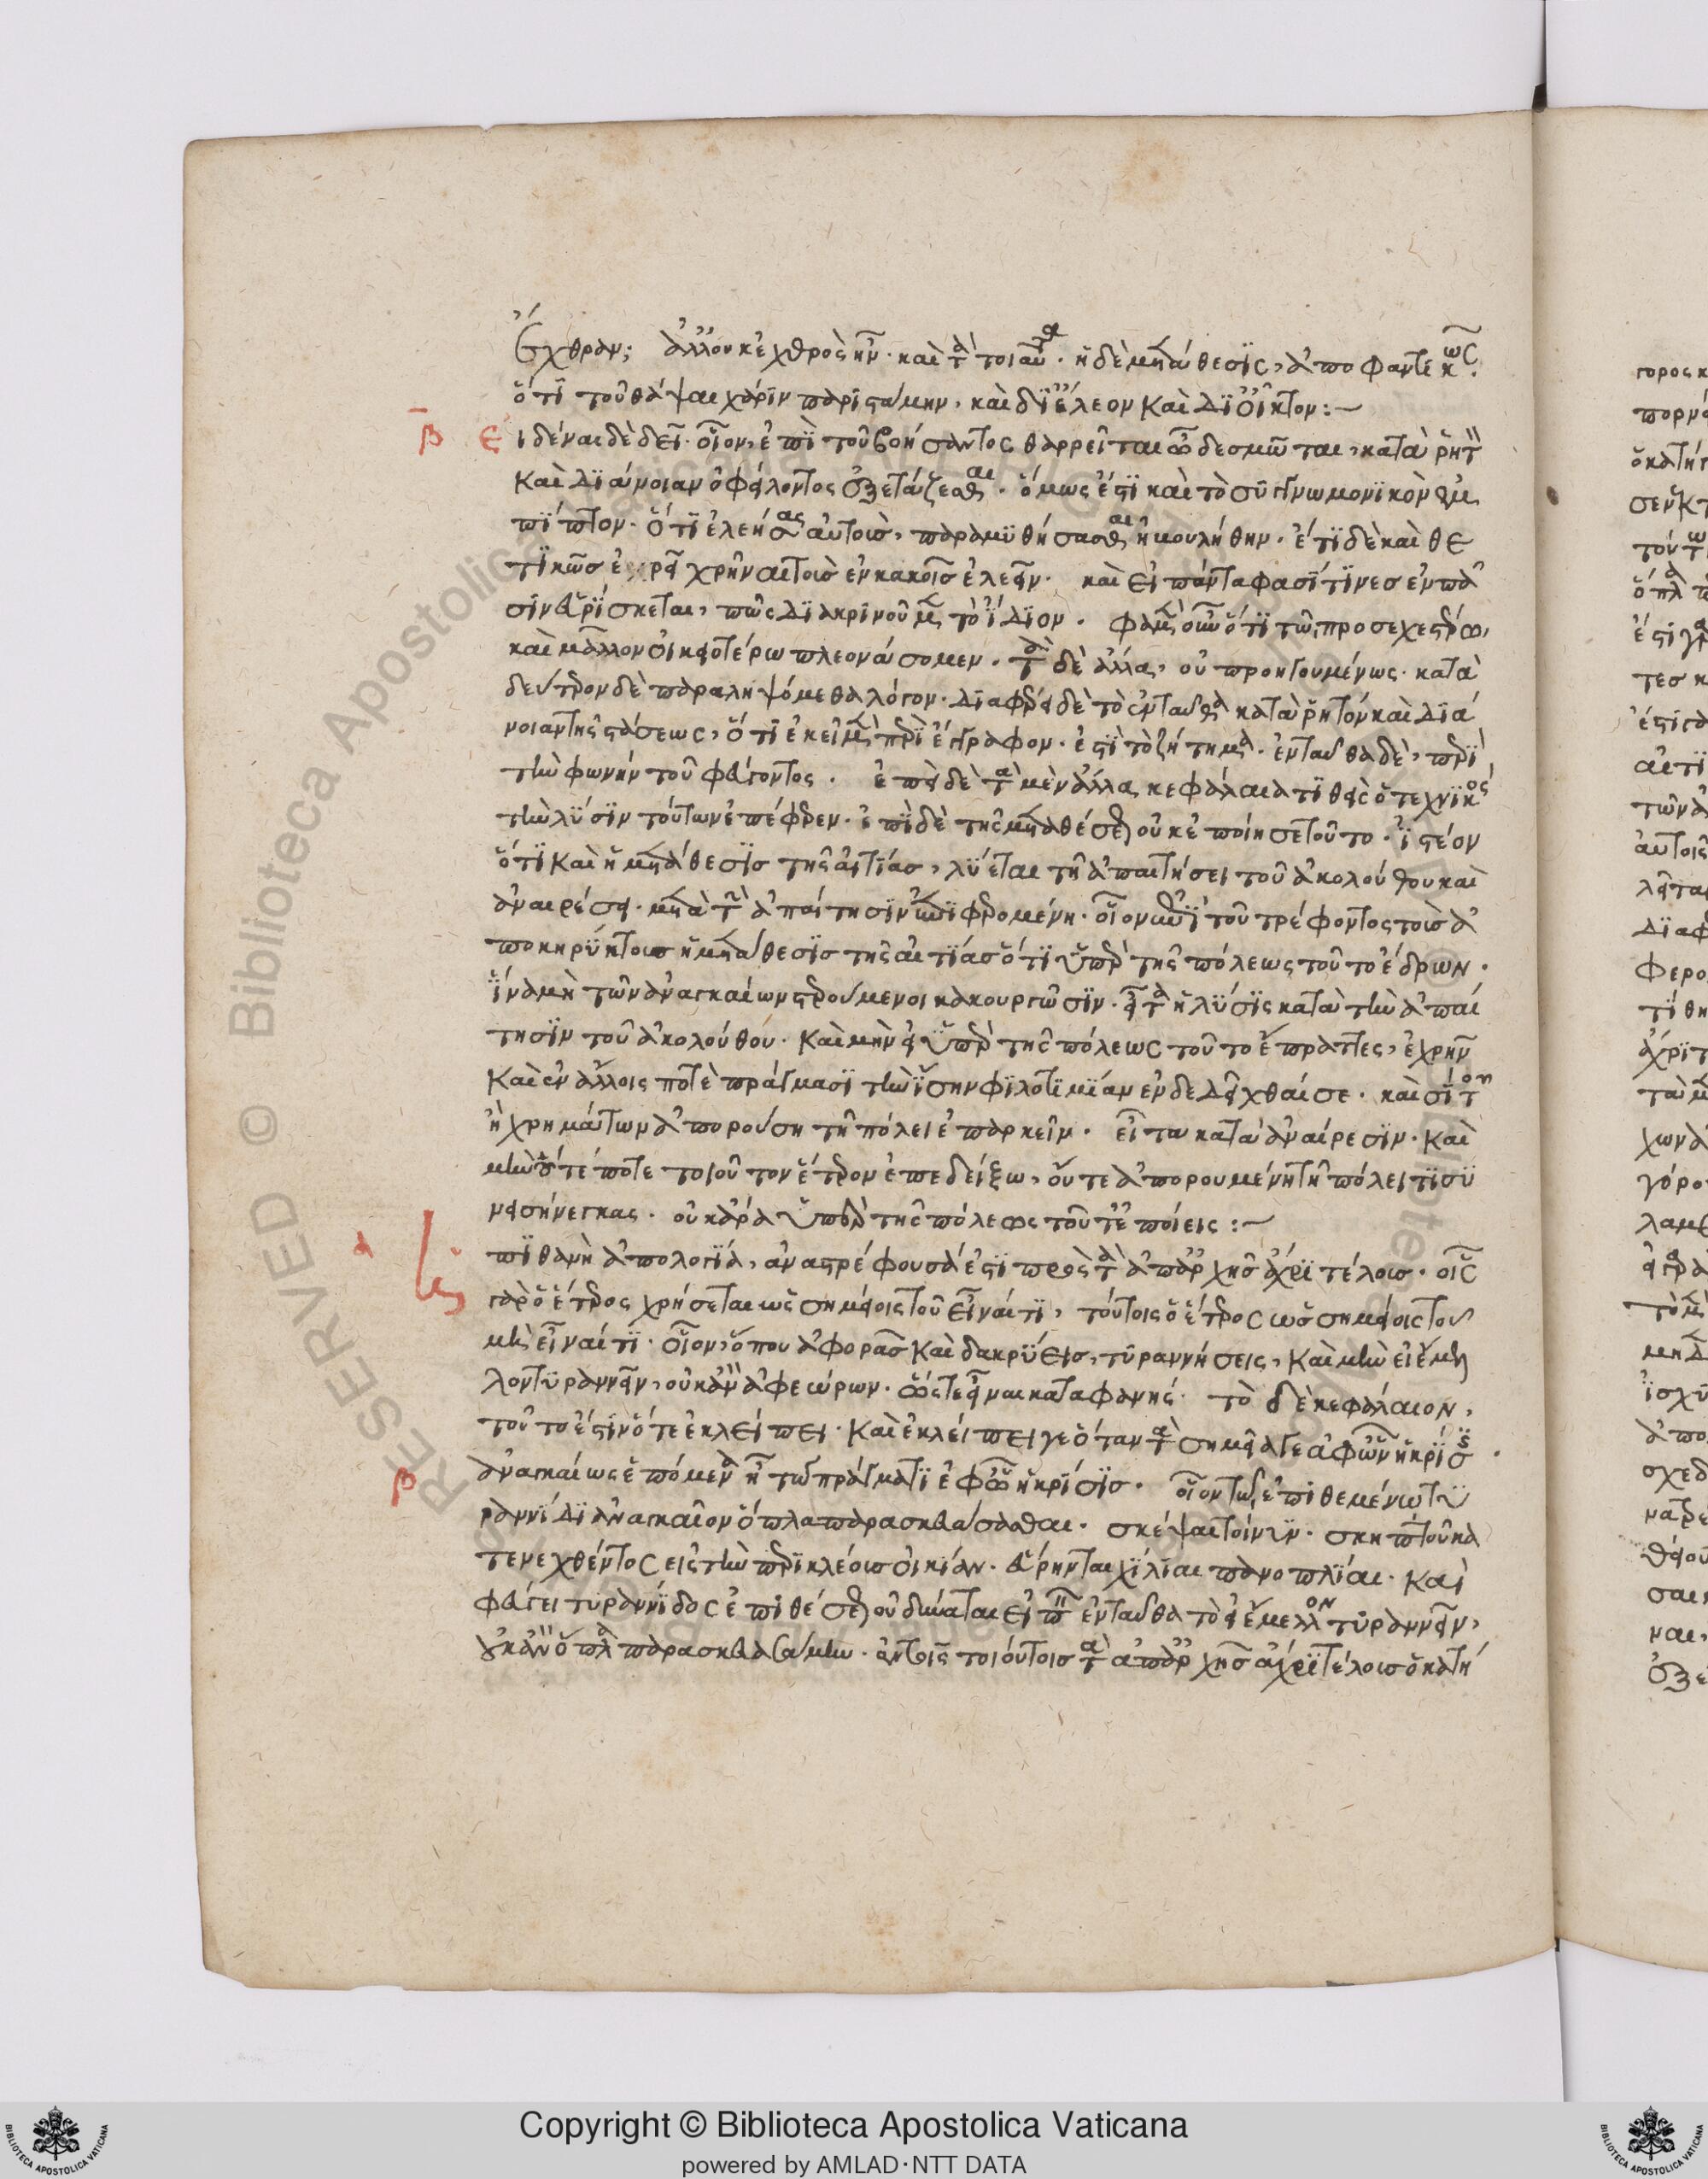 ἔχθραν; ἀλλ' οὐκ ἐχθρὸς ἦν. καὶ τὰ τοιαῦτα. ἡ δὲ μετάθεσις, ἀποφαντικῶς.
ὅτι τοῦ θάψαι χάριν παριστάμην, καὶ δι' ἔλεον καὶ δι' οἶκτον:~
β εἰδέναι δὲ δεῖ. οἷον, ἐπὶ τοῦ βοήσαντος θαρρεῖται ὦ δεσμῶται, κατὰ ῥητὸν
καὶ διάνοιαν ὀφείλοντος ἐξετάζεσθαι. ὅμως ἐστὶ καὶ τὸ συγγνωμονικὸν
πῖπτον. ὅτι ἐλεήσας αὐτοὺς, παραμυθήσασθαι ἠβουλήθην. ἔτι δὲ καὶ θε
τικῶς χρῆν αὐτοὺς ἐν κακοῖς ἐλεεῖν. καὶ εἰ πάντα φασὶ τινὲς ἐν πᾶ
σιν εὑρίσκεται, πῶς διακρινοῦμεν τὸ ἴδιον. φαμὲν οὖν ὅτι τῷ προσεχεστέρω,
καὶ μᾶλλον οἰκειοτέρω πλεονάσομεν. τὰ δὲ ἄλλα, οὐ προηγουμένως. κατὰ
δεύτερον δὲ παραληψόμεθα λόγον. διαφέρει δὲ τὸ ἐνταῦθα κατὰ ῥητὸν καὶ διά
νοιαν τῆς στάσεως, ὅτι ἐκεῖ μὲν περὶ ἔγγραφον. ἐστὶ τὸ ζήτημα. ἐνταῦθα δὲ, περὶ
τὴν φωνὴν τοῦ φεύγοντος. ἐπεὶ δὲ τὰ μὲν ἄλλα κεφάλαια τιθεὶς ὁ τεχνικὸς,
τὴν λύσιν τούτων ἐπέφερεν. ἐπὶ δὲ τῆς μεταθέσεως οὐκ ἐποίησε τοῦτο. ἰστέον
ὅτι καὶ ἡ μετάθεσις τῆς αἰτίας, λύεται τῇ ἀπαιτήσει τοῦ ἀκολούθου καὶ
ἀναιρέσει. μετὰ τὴν ἀπαίτησιν ἐπιφερομένη. οἷον ἐπὶ τοῦ τρέφοντος τοὺς ἀ
ποκηρύκτους ἡ μετάθεσις τῆς αἰτίας ὅτι ὑπὲρ τῆς πόλεως τοῦτο ἔδρων.
ἵνα μὴ τῶν ἀναγκαίων στερούμενοι κακουργῶσιν. εἶτα ἡ λύσις κατὰ τὴν ἀπαί
τησιν τοῦ ἀκολούθου. καὶ μὴν εἰ ὑπὲρ τῆς πόλεως τοῦτο ἔπραττες, ἐχρῆν
καὶ ἐν ἄλλοις ποτὲ πράγμασι τὴν ἴσην φιλοτιμίαν ἐνδεδεῖχθαί σε. καὶ σῖτον
ἢ χρημάτων ἀπορούσῃ τῇ πόλει ἐπαρκεῖν. εἶτα κατὰ ἀναίρεσιν. καὶ
μὴν οὔτέ ποτε τοιοῦτον ἕτερον ἐπεδείξω, οὔτε ἀπορουμένῃ τῇ πόλει τι συ
νεισήνεγκας. οὐκ ἄρα ὑπὲρ τῆς πόλεως τοῦτ' ἐποίεις:~
α πιθανὴ ἀπολογία, ἀναστρέφουσά ἐστι πρὸς τὰ ἀπ' ἀρχῆς ἄχρι τέλους. οἷς
γὰρ ὁ ἕτερος χρήσεται ὡς σημείοις τοῦ εἶναί τι, τούτοις ὁ ἕτερος ὡς σημείοις τοῦ
μὴ εἶναί τι. οἷον, ὅπου ἀφορᾶς καὶ δακρύεις, τυραννήσεις, καὶ μὴν εἰ ἔμελ
λον τυραννεῖν, οὐκ ἂν ἀφεώρων. ὥστε εἶναι καταφανής. τὸ δὲ κεφάλαιον,
τοῦτο ἔστιν ὅτε ἐκλείπει. καὶ ἐκλείπει γε ὅταν τὰ σημεῖά γε ἀφ' ὧν ἡ κρίσις.
β ἀναγκαίως ἑπόμενα ᾖ τῷ πράγματι ἐφ' ᾧ ἡ κρίσις. οἷον τῷ ἐπιθεμένῳ τυ
ραννίδι ἀναγκαῖον ὅπλα παρασκευάσασθαι. σκέψαι τοίνυν. σκηπτοῦ κα
τενεχθέντος εἰς τὴν περικλέους οἰκίαν. εὕρηνται χίλιαι πανοπλίαι. καὶ
φεύγει τυραννίδος ἐπιθέσεως οὐ δύναται εἰπεῖν ἐνταῦθα τὸ εἰ ἔμελλον τυραννεῖν,
οὐκ ἂν ὅπλα παρασκευασάμην. ἐν τοῖς τοιούτοις τὰ ἀπ' ἀρχῆς ἄχρι τέλους ὁ κατή
Copyright © Biblioteca Apostolica Vaticana
powered by AMLAD·NTT DATA